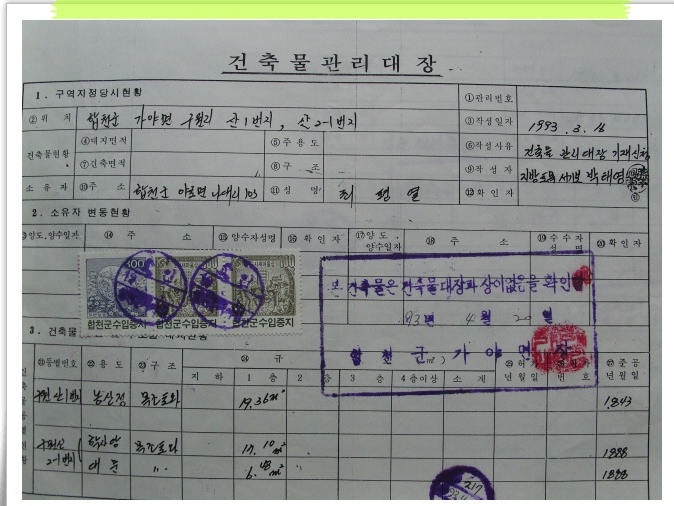 건축물관리대장
1. 구역지정당시현황
②위 치 합천군 가야면 구원리 산1번지, 산2-1번지
①관리번호
③작성일자 1993. 3. 16
건축물현황 ④대지면적 ⑤주용도
⑥작성사유 건축물 관리대장 기재신청
⑦건축면적 ⑧구 조
⑨작 성 자 지방토목서기보 박태영
소 유 자 ⑩주 소 합천군 야로면 나대리 103 ⑪성 명 최 평 열
⑫확 인 자
2. 소유자 변동현황
양도, 양수일자 ⑭ 주 소 ⑮양수자성명 ⑯확 인 자 ⑰양도·양수일자 ⑱ 주 소 ⑲수수자 성 명 ⑳확 인 자
300
합천군수입증지 합천군수입증지 합천군수입증지
본 건축물은 건축물대장과 상이없음을 확인
93년 4월 20일
합 천 군 가 야 면 장
3. 건축물
㉑동별번호 ㉒용 도 ㉓구 조 ㉔ 규
지 하 1 층 2 층 3 층 4층이상 소 계
년월일 번 호
준공
년월일
농산정 목조토와 19.36㎡ 1,843
17.10㎡ 1888
2-1번지 대문 〃 6.48㎡ 1888
217